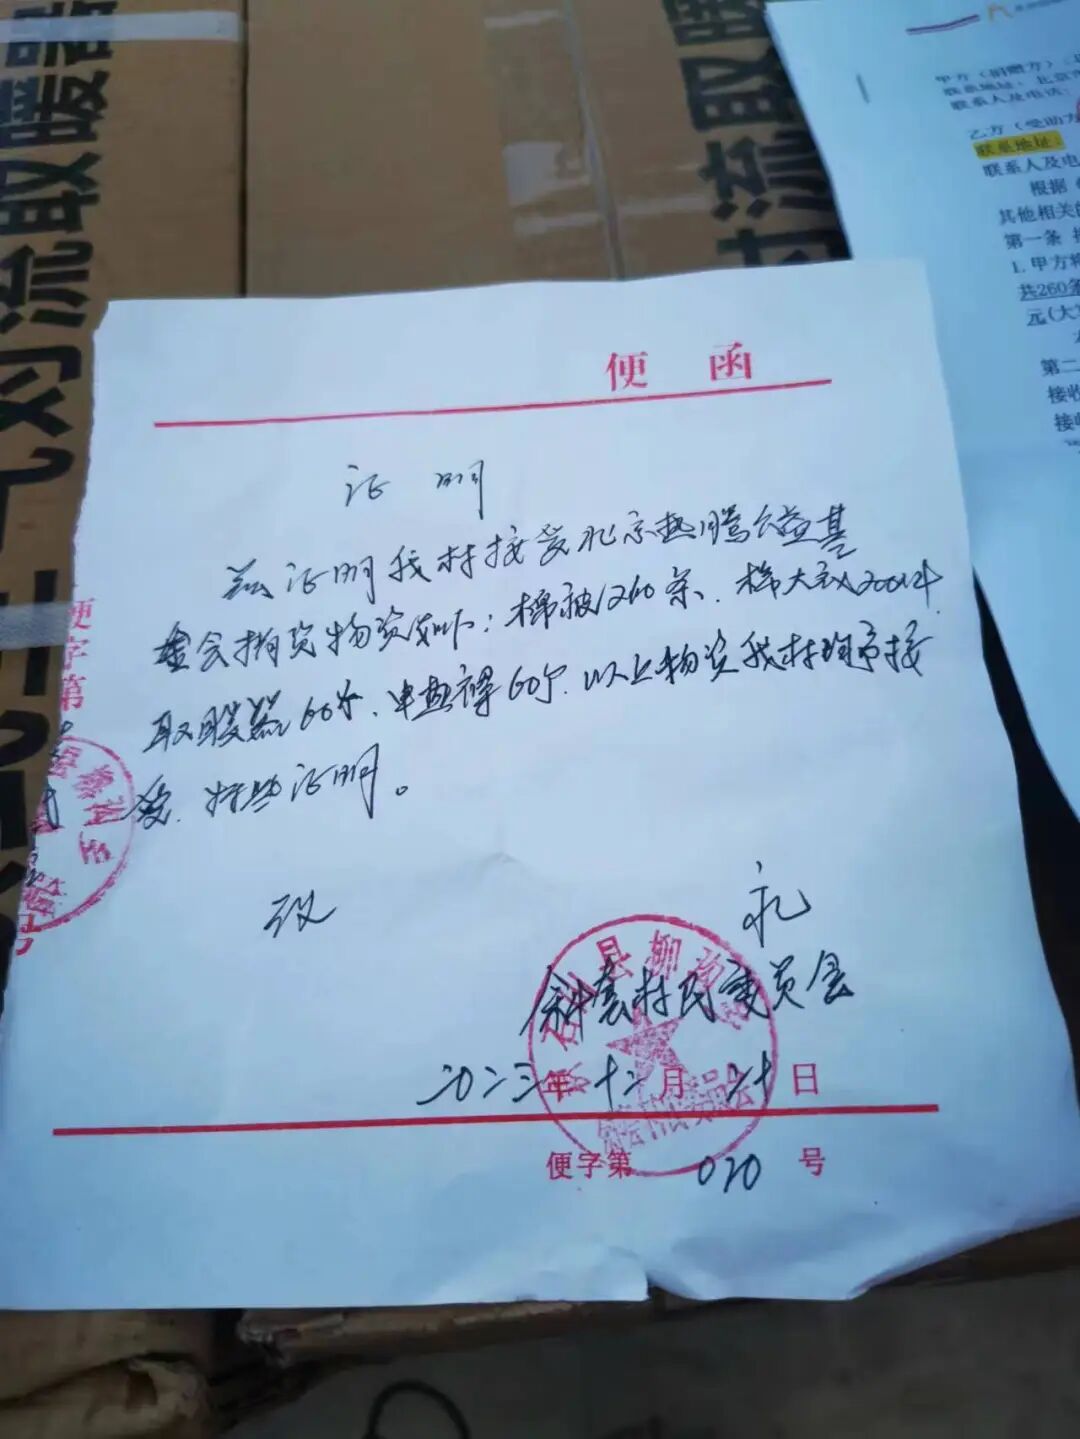 对流取暖器
对流取暖
甲方（捐赠方）
联系地址：北京市
联系人及电话：
乙方（受助方
联系地址：
联系人及电
根据
其他相关的
第一条
1. 甲方将
共260条
元(大写
第二
接收
便 函
证 明
兹证明我村接受北京热腾公益基
金会捐资物资如下：棉被260条、棉大衣200件、
取暖器60个、电热褥60个、以上物资我村均予接
受、特此证明。
致
礼
斜套村民委员会
二0二三年十二月二十日
便字第 020 号
便字第
号